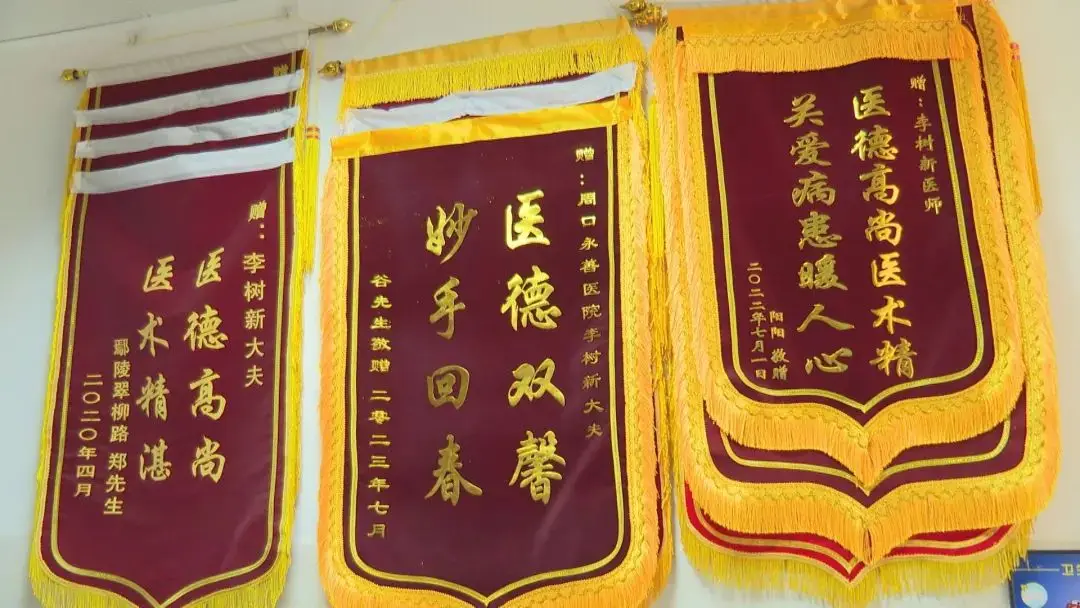 赠：李树新大夫
医德高尚
医术精湛
鄢陵翠柳路 郑先生
二〇二〇年四月
赠：周口永善医院李树新大夫
医德双馨
妙手回春
谷先生敬赠 二零二三年七月
赠：李树新医师
医德高尚医术精
关爱病患暖人心
敬赠
二〇二二年七月一日